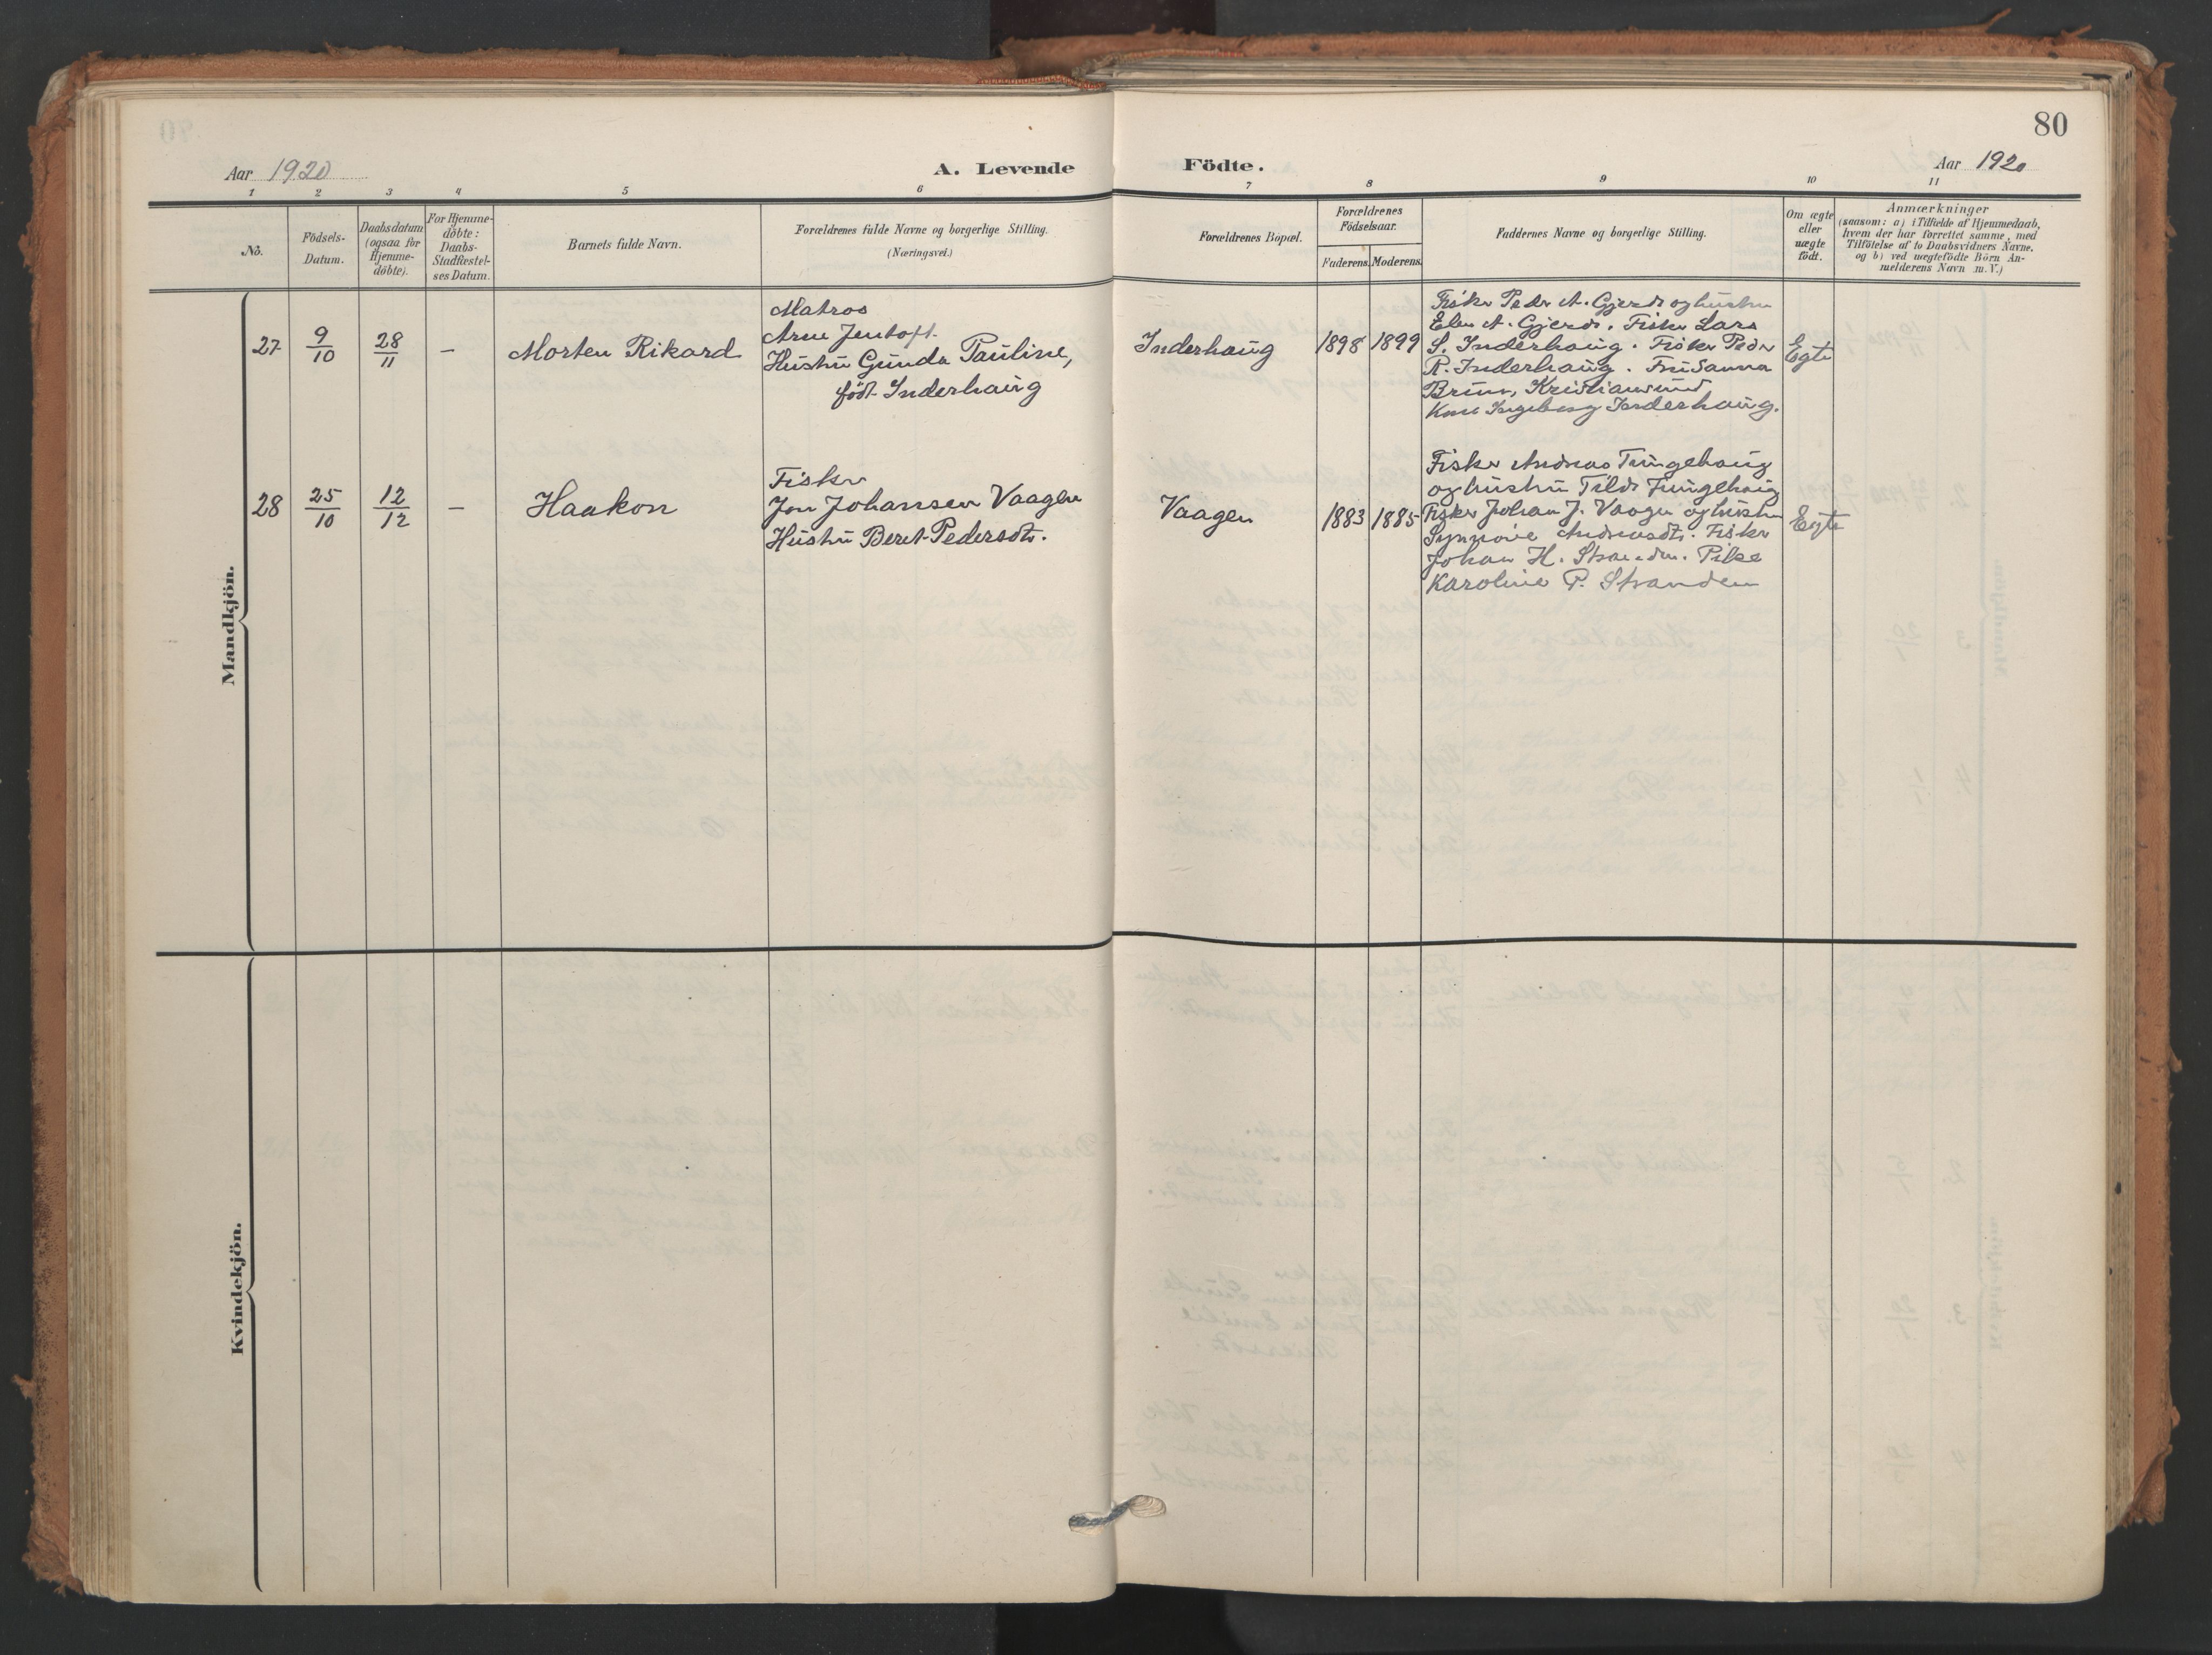 80
Aar 1920
A. Levende Födte.
Aar 1920
1 2 3 4 5 6 7 8 9 10 11
No.
Födsels-
Datum.
Daabsdatum
(ogsaa for
Hjemme-
döbte).
For Hjemme-
döbte:
Daabs-
Stadfæstel-
ses Datum.
Barnets fulde Navn.
Forældrenes fulde Navne og borgerlige Stilling.
(Næringsvei.)
Forældrenes Bopæl.
Forældrenes
Födselsaar.
Faderens. Moderens.
Faddernes Navne og borgerlige Stilling.
Om ægte
eller
uægte
födt.
Anmærkninger
(saasom: a) i Tilfælde af Hjemmedaab,
hvem der har forrettet samme, med
Tilföielse af to Daabsvidners Navne,
og b) ved uægtefödte Börn An-
melderens Navn m. V.)
Mandkjön.
27
9/10
28/11
–
Morten Rikard
Matros
Arne Jentoft.
Hustru Gunda Pauline,
födt Inderhaug
Inderhaug
1898
1899
Fisker Peder A. Gjerde og hustru
A. Gjerde. Fisker Lars
S. Inderhaug. Fisker Peder
R. Inderhaug. Fru Sanna
Brun, Kristiansund
Ingeborg Inderhaug.
Egte
28
25/10
12/12
–
Haakon
Fisker
Jon Johansen Vaagen
Hustru Beret Pedersdtr.
Vaagen
1883
1885
Fisker Andreas Tungehaug
og hustru Tungehaug
Fisker Johan J. Vaagen og hustru
Synnöve Andreasdtr. Fisker
Johan H. Stranden. Pike
Karoline P. Stranden
Egte
Kvindekjön.